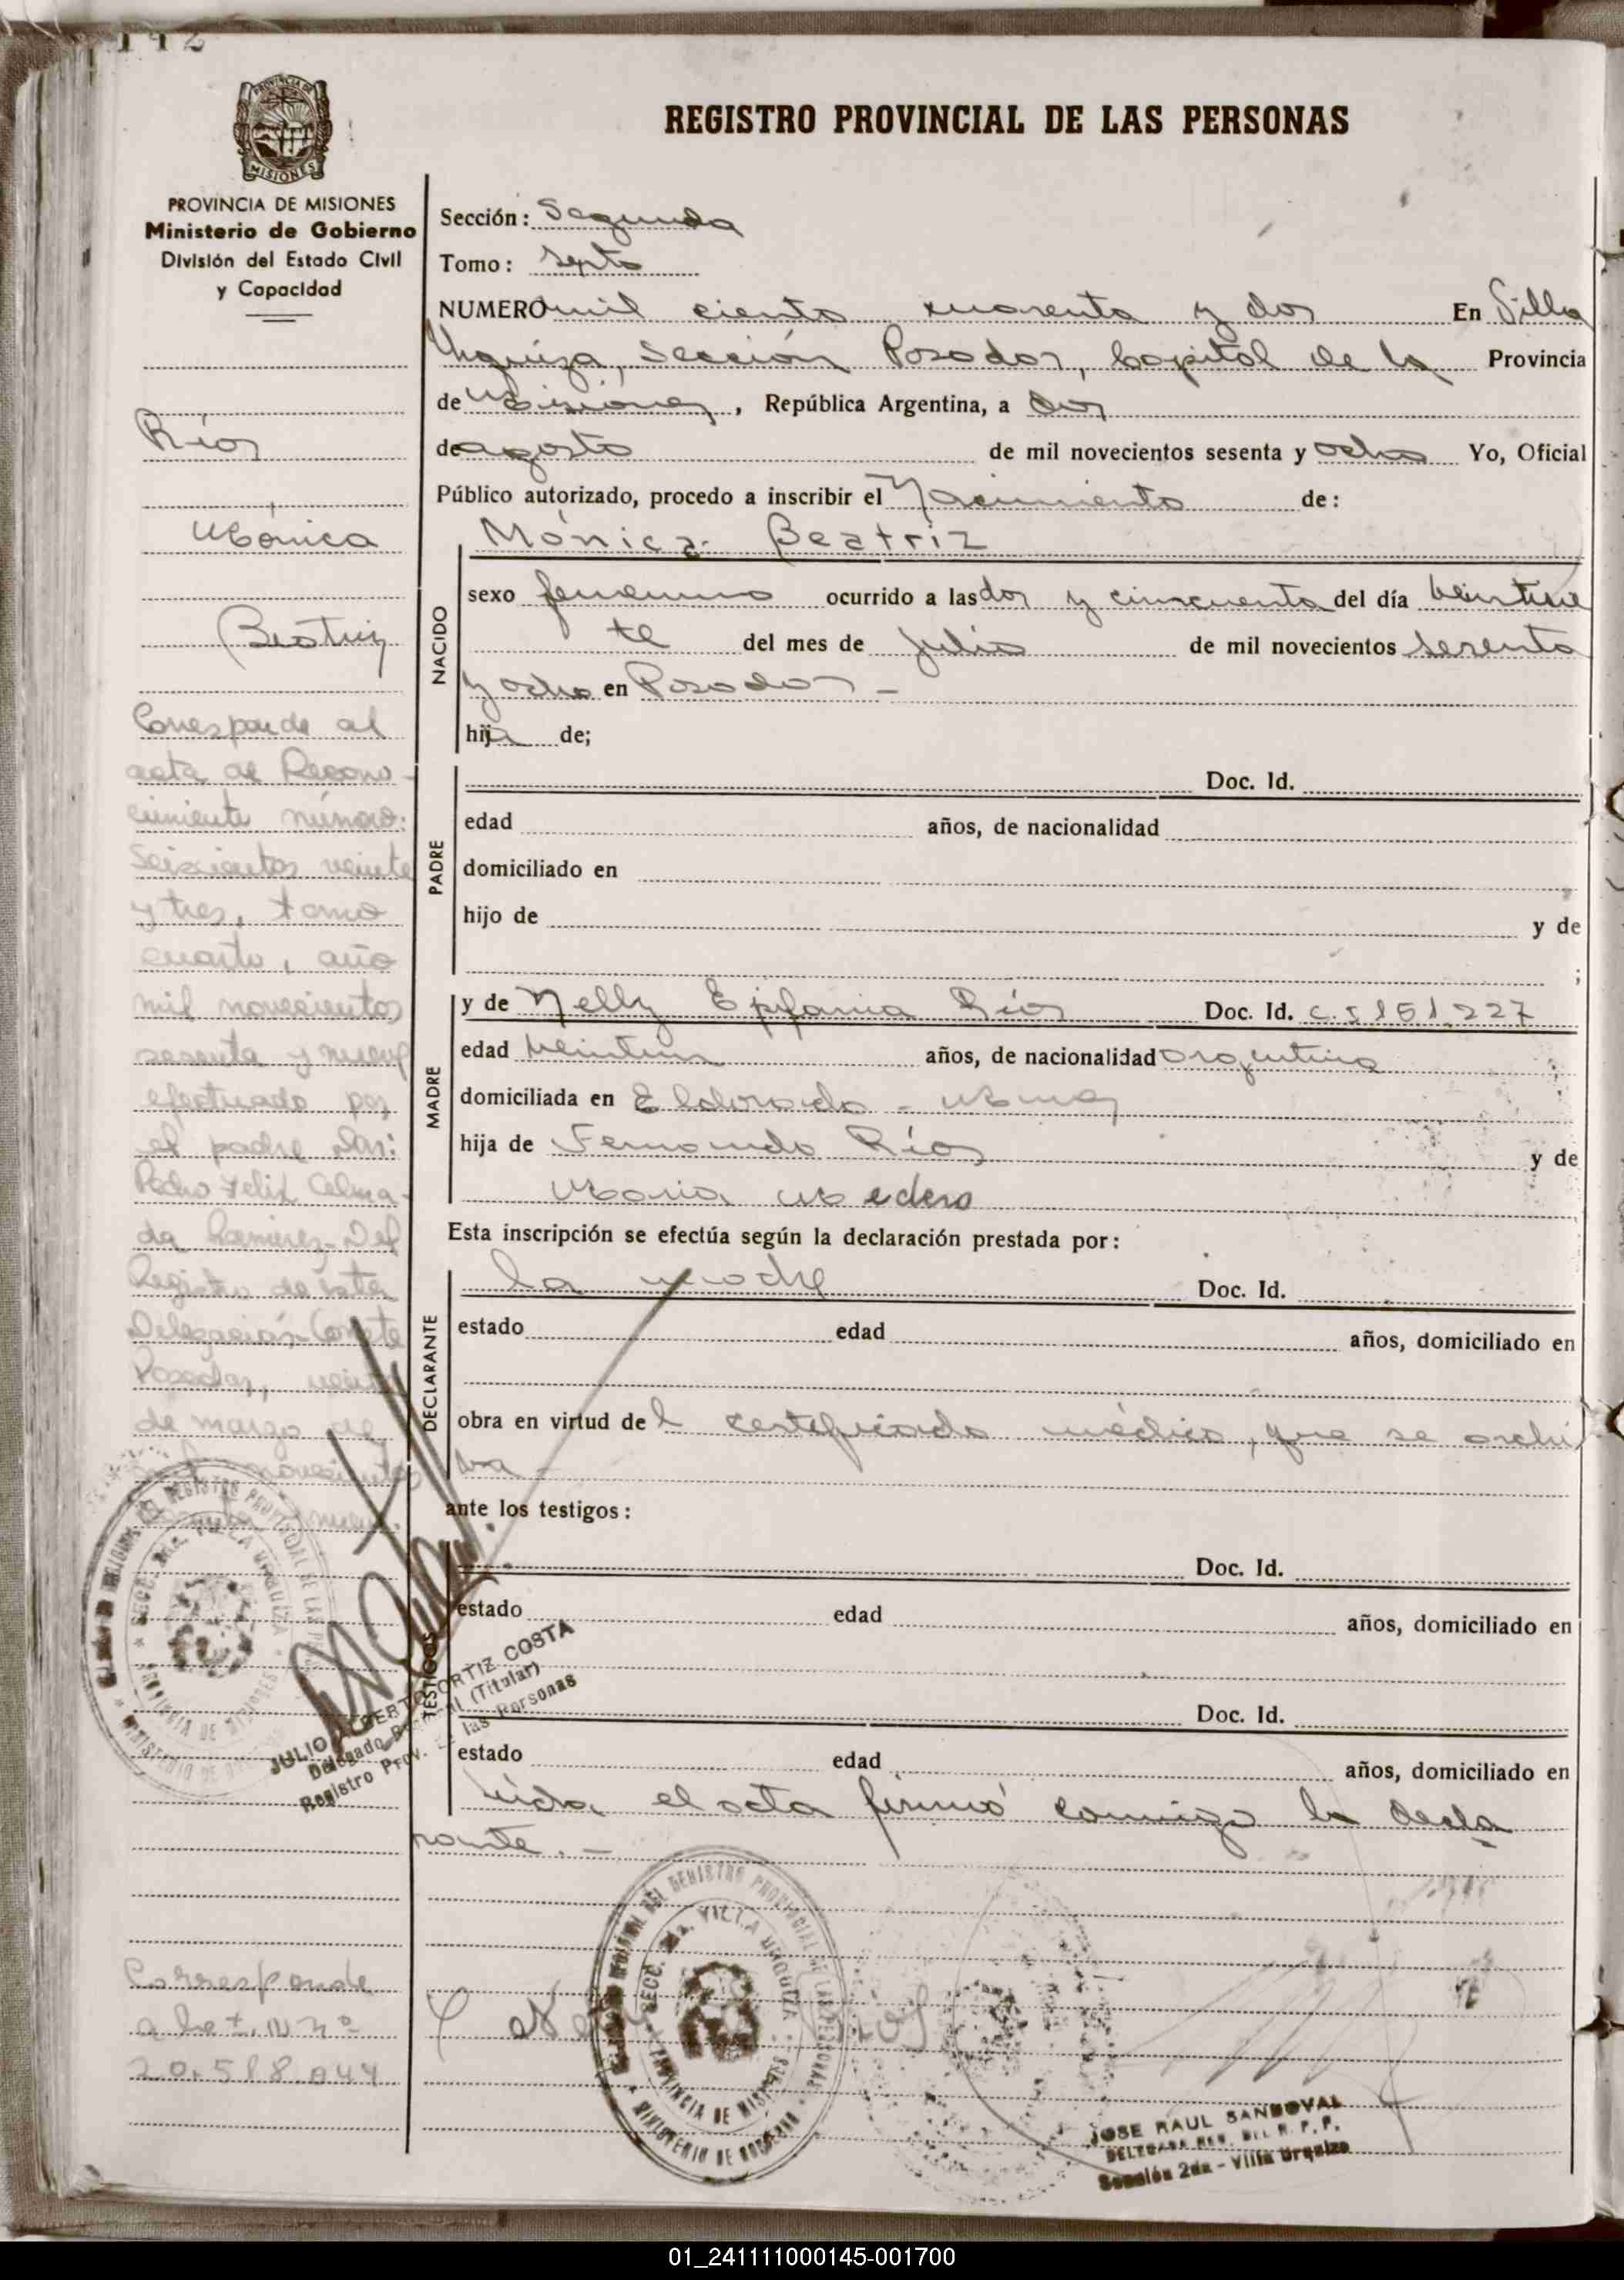 142
PROVINCIA DE
MISIONES
REGISTRO PROVINCIAL DE LAS PERSONAS
PROVINCIA DE MISIONES
Ministerio de Gobierno
División del Estado Civil
y Capacidad
Ríos
Mónica
Beatriz
Corresponde al
acta de Recono-
cimiento número:
Seiscientos veinte
y tres, tomo
cuarto, año
mil novecientos
sesenta y nueve
efectuado por
el padre Don:
Pedro Felix Celma-
da Ramirez- Del
Registro de esta
Delegación- Conste
Posadas, veinte
de marzo de
mil novecientos
sesenta y nueve.
JULIO ALBERTO ORTIZ COSTA
Delegado (Titular)
Registro Prov. de las Personas
Corresponde
a la N°
20.518.044
Sección: Segunda
Tomo: Septo
NUMERO mil ciento cuarenta y dos En Villa
Urquiza, Sección Posadas, Capital de la Provincia
de Misiones, República Argentina, a dos
de agosto de mil novecientos sesenta y ocho Yo, Oficial
Público autorizado, procedo a inscribir el Nacimiento de:
Mónica Beatriz
NACIDO
sexo femenino ocurrido a las dos y cincuenta del día veintisie
te del mes de julio de mil novecientos sesenta
y ocho en Posadas -
hija de;
PADRE
Doc. Id.
edad años, de nacionalidad
domiciliado en
hijo de y de
;
MADRE
y de Nelly Epifania Ríos Doc. Id. C.I 151.227
edad veintiun años, de nacionalidad argentina
domiciliada en Eldorado - Mnes
hija de Fernando Ríos y de
Maria Medero
Esta inscripción se efectúa según la declaración prestada por:
DECLARANTE
la madre Doc. Id.
estado edad años, domiciliado en
obra en virtud del certificado médico, que se archi
va -
ante los testigos:
TESTIGOS
Doc. Id.
estado edad años, domiciliado en
Doc. Id.
estado edad años, domiciliado en
Leída el acta firmó conmigo la decla
rante. -
SECC. 2da. VILLA URQUIZA
PROVINCIA DE MISIONES
MINISTERIO DE GOBIERNO
JOSE RAUL SANDOVAL
Sección 2da - Villa Urquiza
01_241111000145-001700